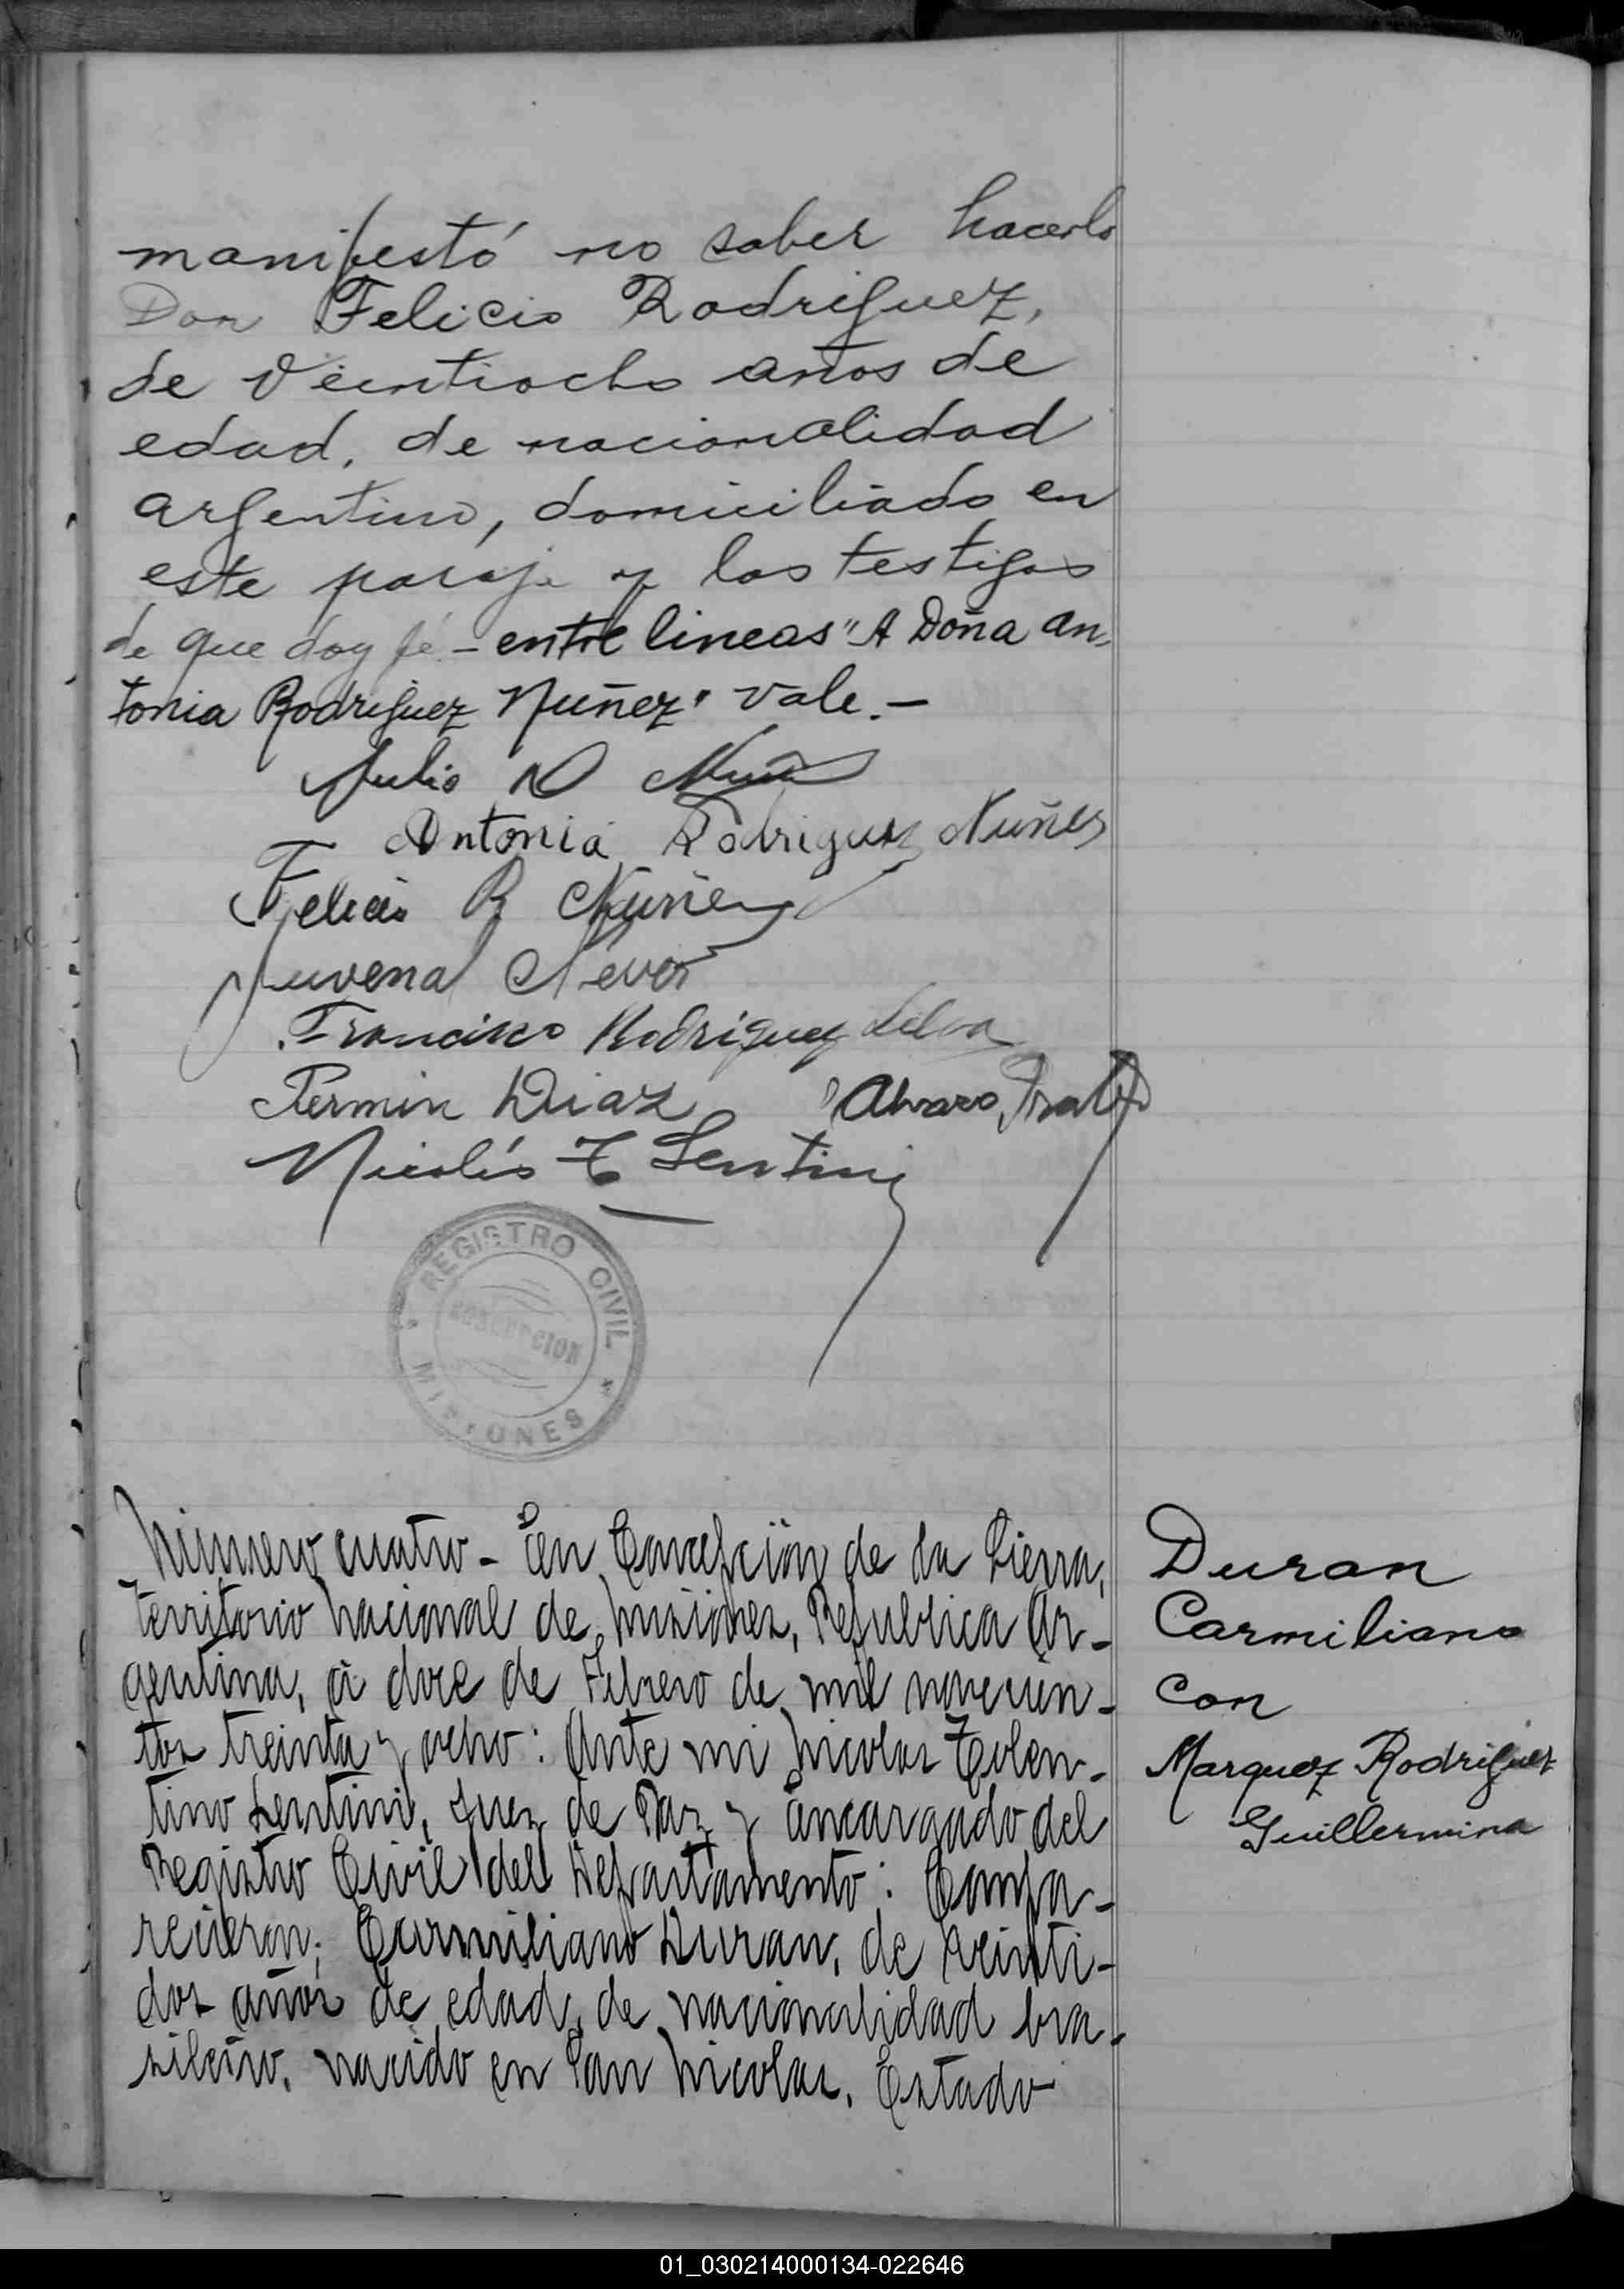 manifestó no saber hacerlo
Don Felicio Rodriguez,
de Veintiocho años de
edad, de nacionalidad
argentino, domiciliado en
este paraje y los testigos
de que doy fé.- entre lineas "A Doña An-
tonia Rodriguez Nuñez" vale.-
Julio
Antonia Rodriguez Nuñes
Felicio R Nuñez
Juvenal
Francisco Rodriguez Silva
Fermin Diaz
Alvaro
Nicolás T Lentini
REGISTRO CIVIL
CONCEPCION
MISIONES
Número cuatro - En Concepción de la Sierra,
territorio Nacional de Misiones, República Ar-
gentina, á doce de Febrero de mil novecien-
tos treinta y ocho: Ante mi Nicolas Tolen-
tino Lentini, Juez de Paz y Encargado del
Registro Civil del Departamento: Compa-
recieron; Carmiliano Duran, de veinti-
dos años de edad, de nacionalidad bra-
sileño, nacido en San Nicolas, Estado
Duran
Carmiliano
con
Marquez Rodriguez
Guillermina
01_030214000134-022646